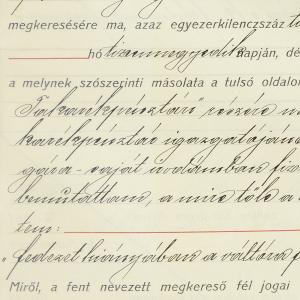 megkeresésére ma, azaz egyezerkilenczszáz
hó tizennegyedik napján, dé
a melynek szószerinti másolata a tulsó oldalo
Takarékpénztár" részére
karékpénztár igazgatójána
gára - saját irodámban fiz
bemutattam, a mire tőle a
tem:
„fedezet hiányában a váltóra f
Miről, a fent nevezett megkereső fél jogai